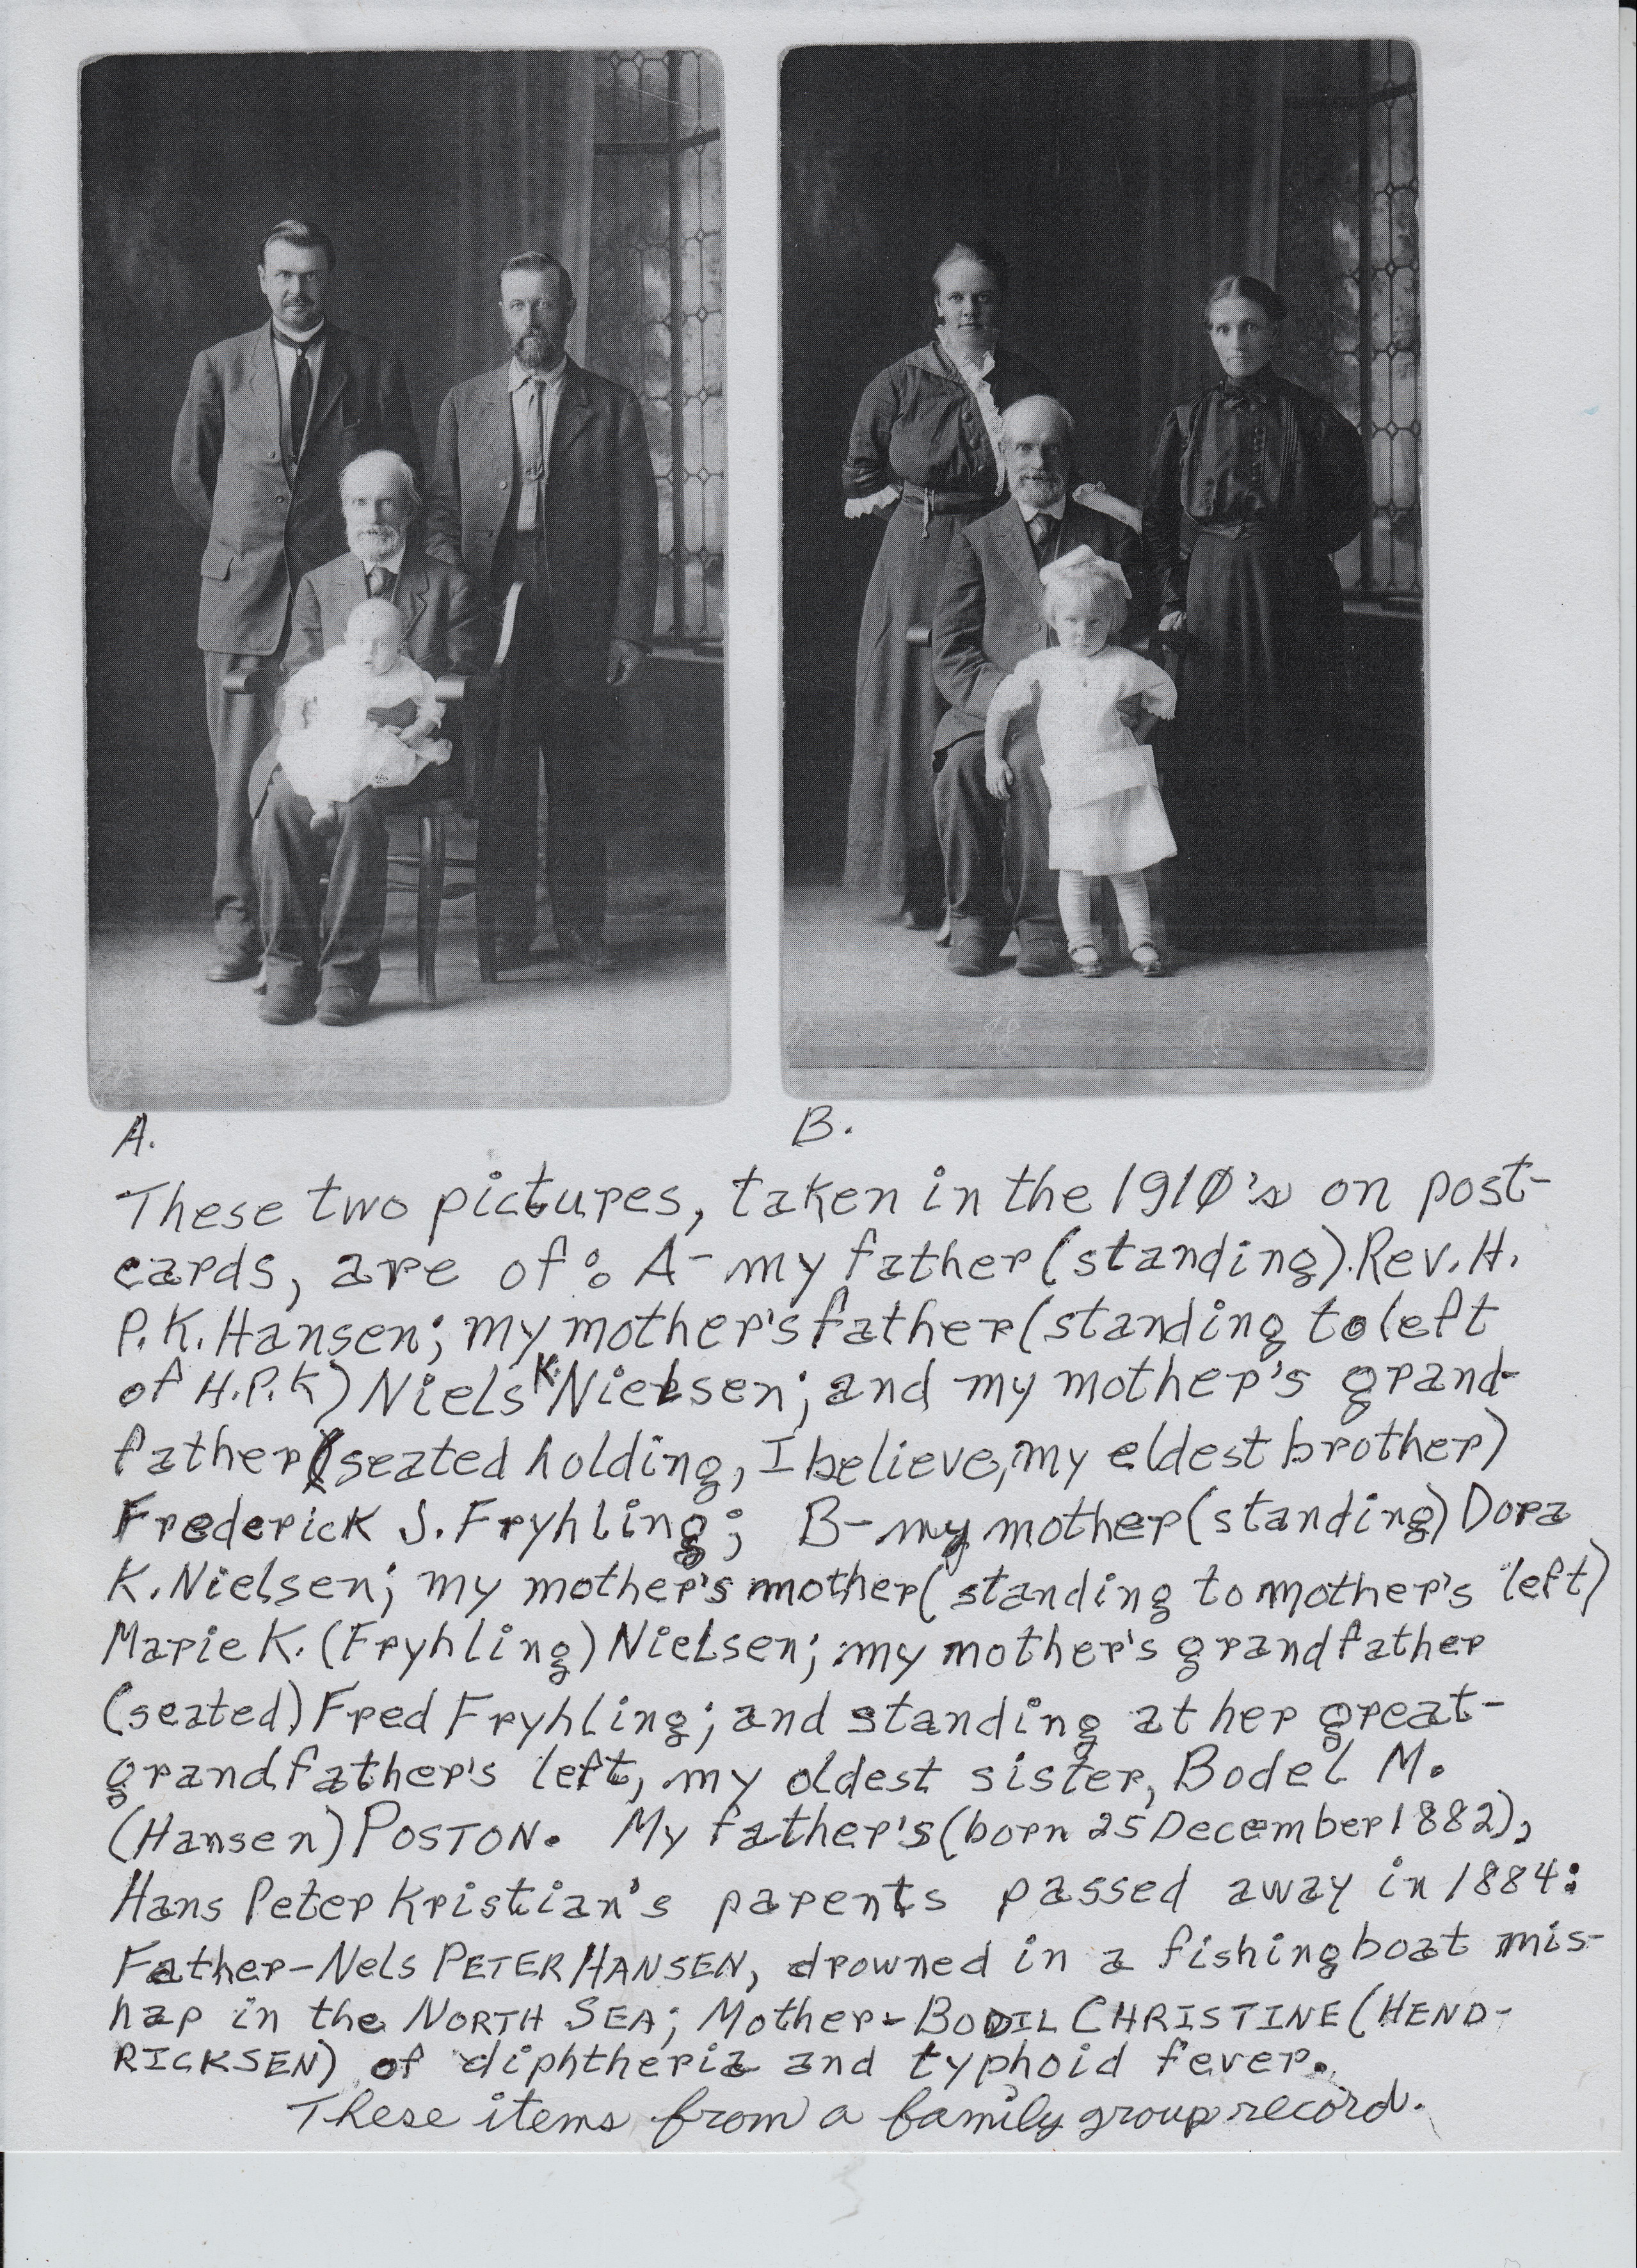 A.
B.
These two pictures, taken in the 1910's on post-
cards, are of: A- my father (standing). Rev. H.
P.K. Hansen; my mother's father (standing to left
of H.P.K) Niels K. Nielsen; and my mother's grand-
father (seated holding, I believe, my eldest brother)
Frederick J. Fryhling; B- my mother (standing) Dora
K. Nielsen; my mother's mother (standing to mother's left)
Marie K. (Fryhling) Nielsen; my mother's grandfather
(seated) Fred Fryhling; and standing at her great-
grandfather's left, my oldest sister, Bodel M.
(Hansen) POSTON. My father's (born 25 December 1882),
Hans Peter Kristian's parents passed away in 1884:
Father-Nels PETER HANSEN, drowned in a fishing boat mis-
hap in the NORTH SEA; Mother- BODIL CHRISTINE (HEND-
RICKSEN) of diphtheria and typhoid fever.
These items from a family group record.